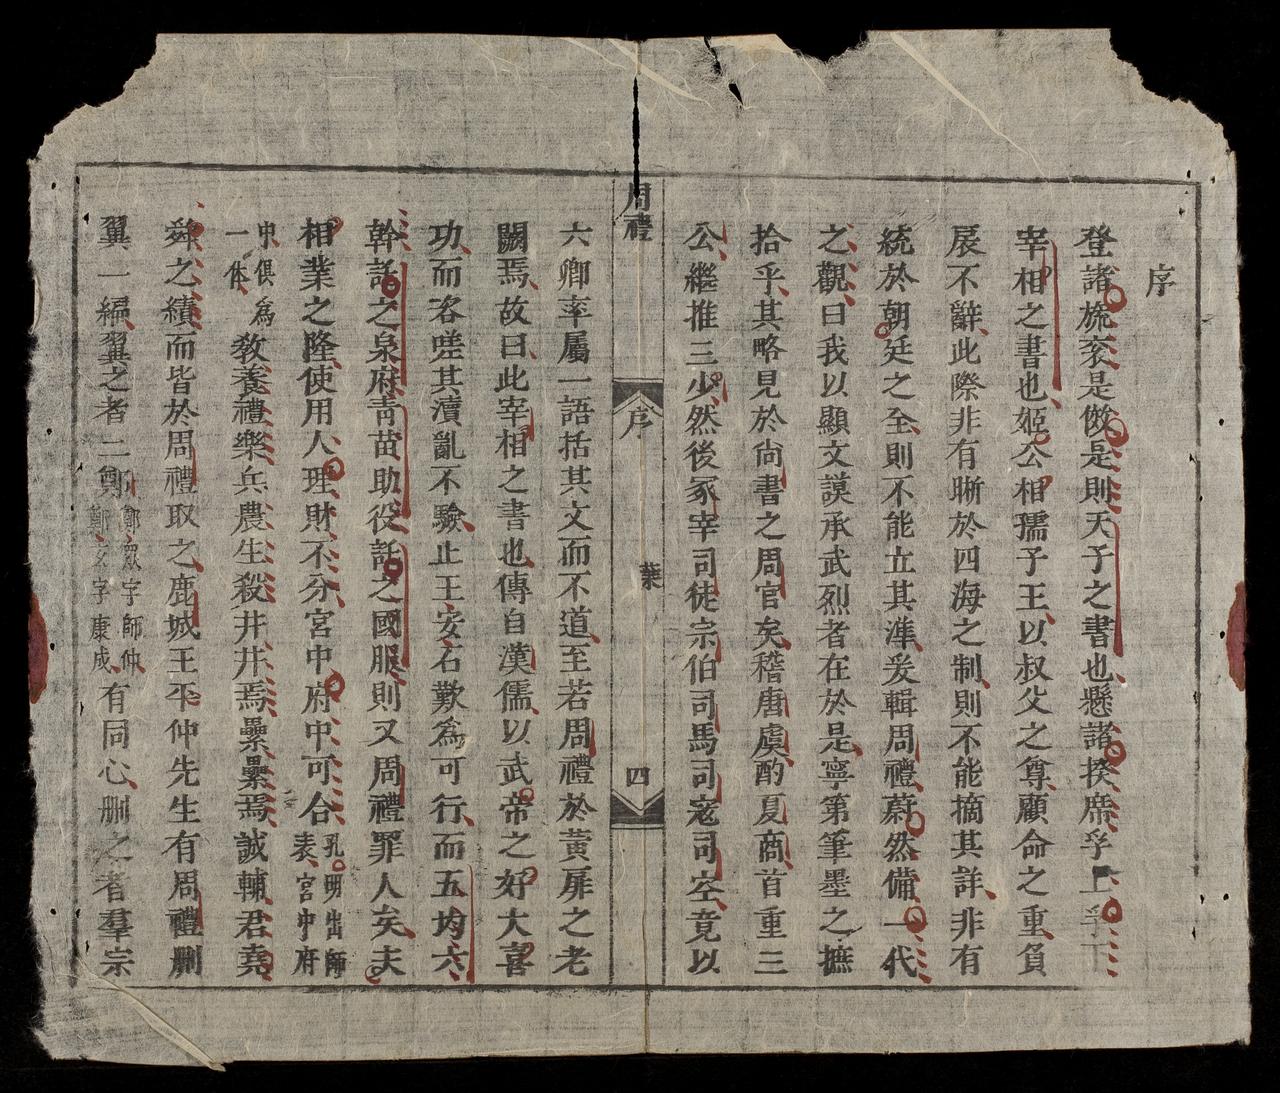 序
登諸旒衮是倣是則天子之書也懸諸揆席孚上孚下
宰相之書也姬公相孺子王以叔父之尊顧命之重負
扆不辭此際非有晰於四海之制則不能摘其詳非有
統於朝廷之至則不能立其準爰輯周禮蔚然備一代
之觀曰我以顯文謨承武烈者在於是寧第筆墨之摭
拾乎其略見於尚書之周官矣稽唐虞酌夏商首重三
公繼推三少然後冢宰司徒宗伯司馬司寇司空竟以
周禮 序 葉 四
六卿率屬一語括其文而不道至若周禮於黃扉之老
闕焉故曰此宰相之書也傳自漢儒以武帝之好大喜
功而咨嗟其瀆亂不驗止王安石歎為可行而五均六
幹託之泉府青苗助役託之國服則又周禮罪人矣夫
相業之隆使用人理財不分宮中府中可合孔明出師表宮中府
中俱為一体教養禮樂兵農生殺井井焉纍纍焉誠輔君堯
舜之績而皆於周禮取之鹿城王平仲先生有周禮刪
翼一編翼之者二鄭鄭眾字師仲鄭玄字康成有同心刪之者羣宗